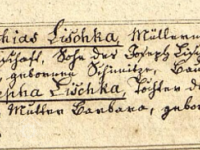 hias Lischka, Müllerm
schaft, Sohn des Joseph Lisch
, gebornen Schmütze, Bau
enha Lischka, Tochter de
Mutter Barbara, gebor